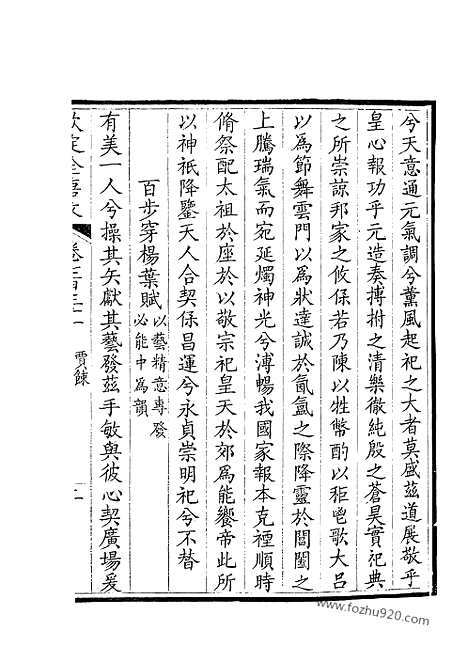 兮天意通元氣調兮薰風起祀之大者莫盛茲道展敬乎
皇心報功乎元造奏搏拊之清樂徹純殷之蒼昊實祀典
之所崇諒邦家之攸保若乃陳以牲幣酌以秬鬯歌大呂
以為節舞雲門以為狀達誠於氤氳之際降靈於閶闔之
上騰瑞氣而宛延燭神光兮溥暢我國家報本克禋順時
脩祭配太祖於座於以敬宗祀皇天於郊為能饗帝此所
以神祇降鑒天人合契保昌運兮永貞崇明祀兮不替
百步穿楊葉賦以藝精意專發
必能中為韻
有美一人兮操其矢獻其藝發茲手敏與彼心契廣場爰
賈餗
www.fozhu920.com